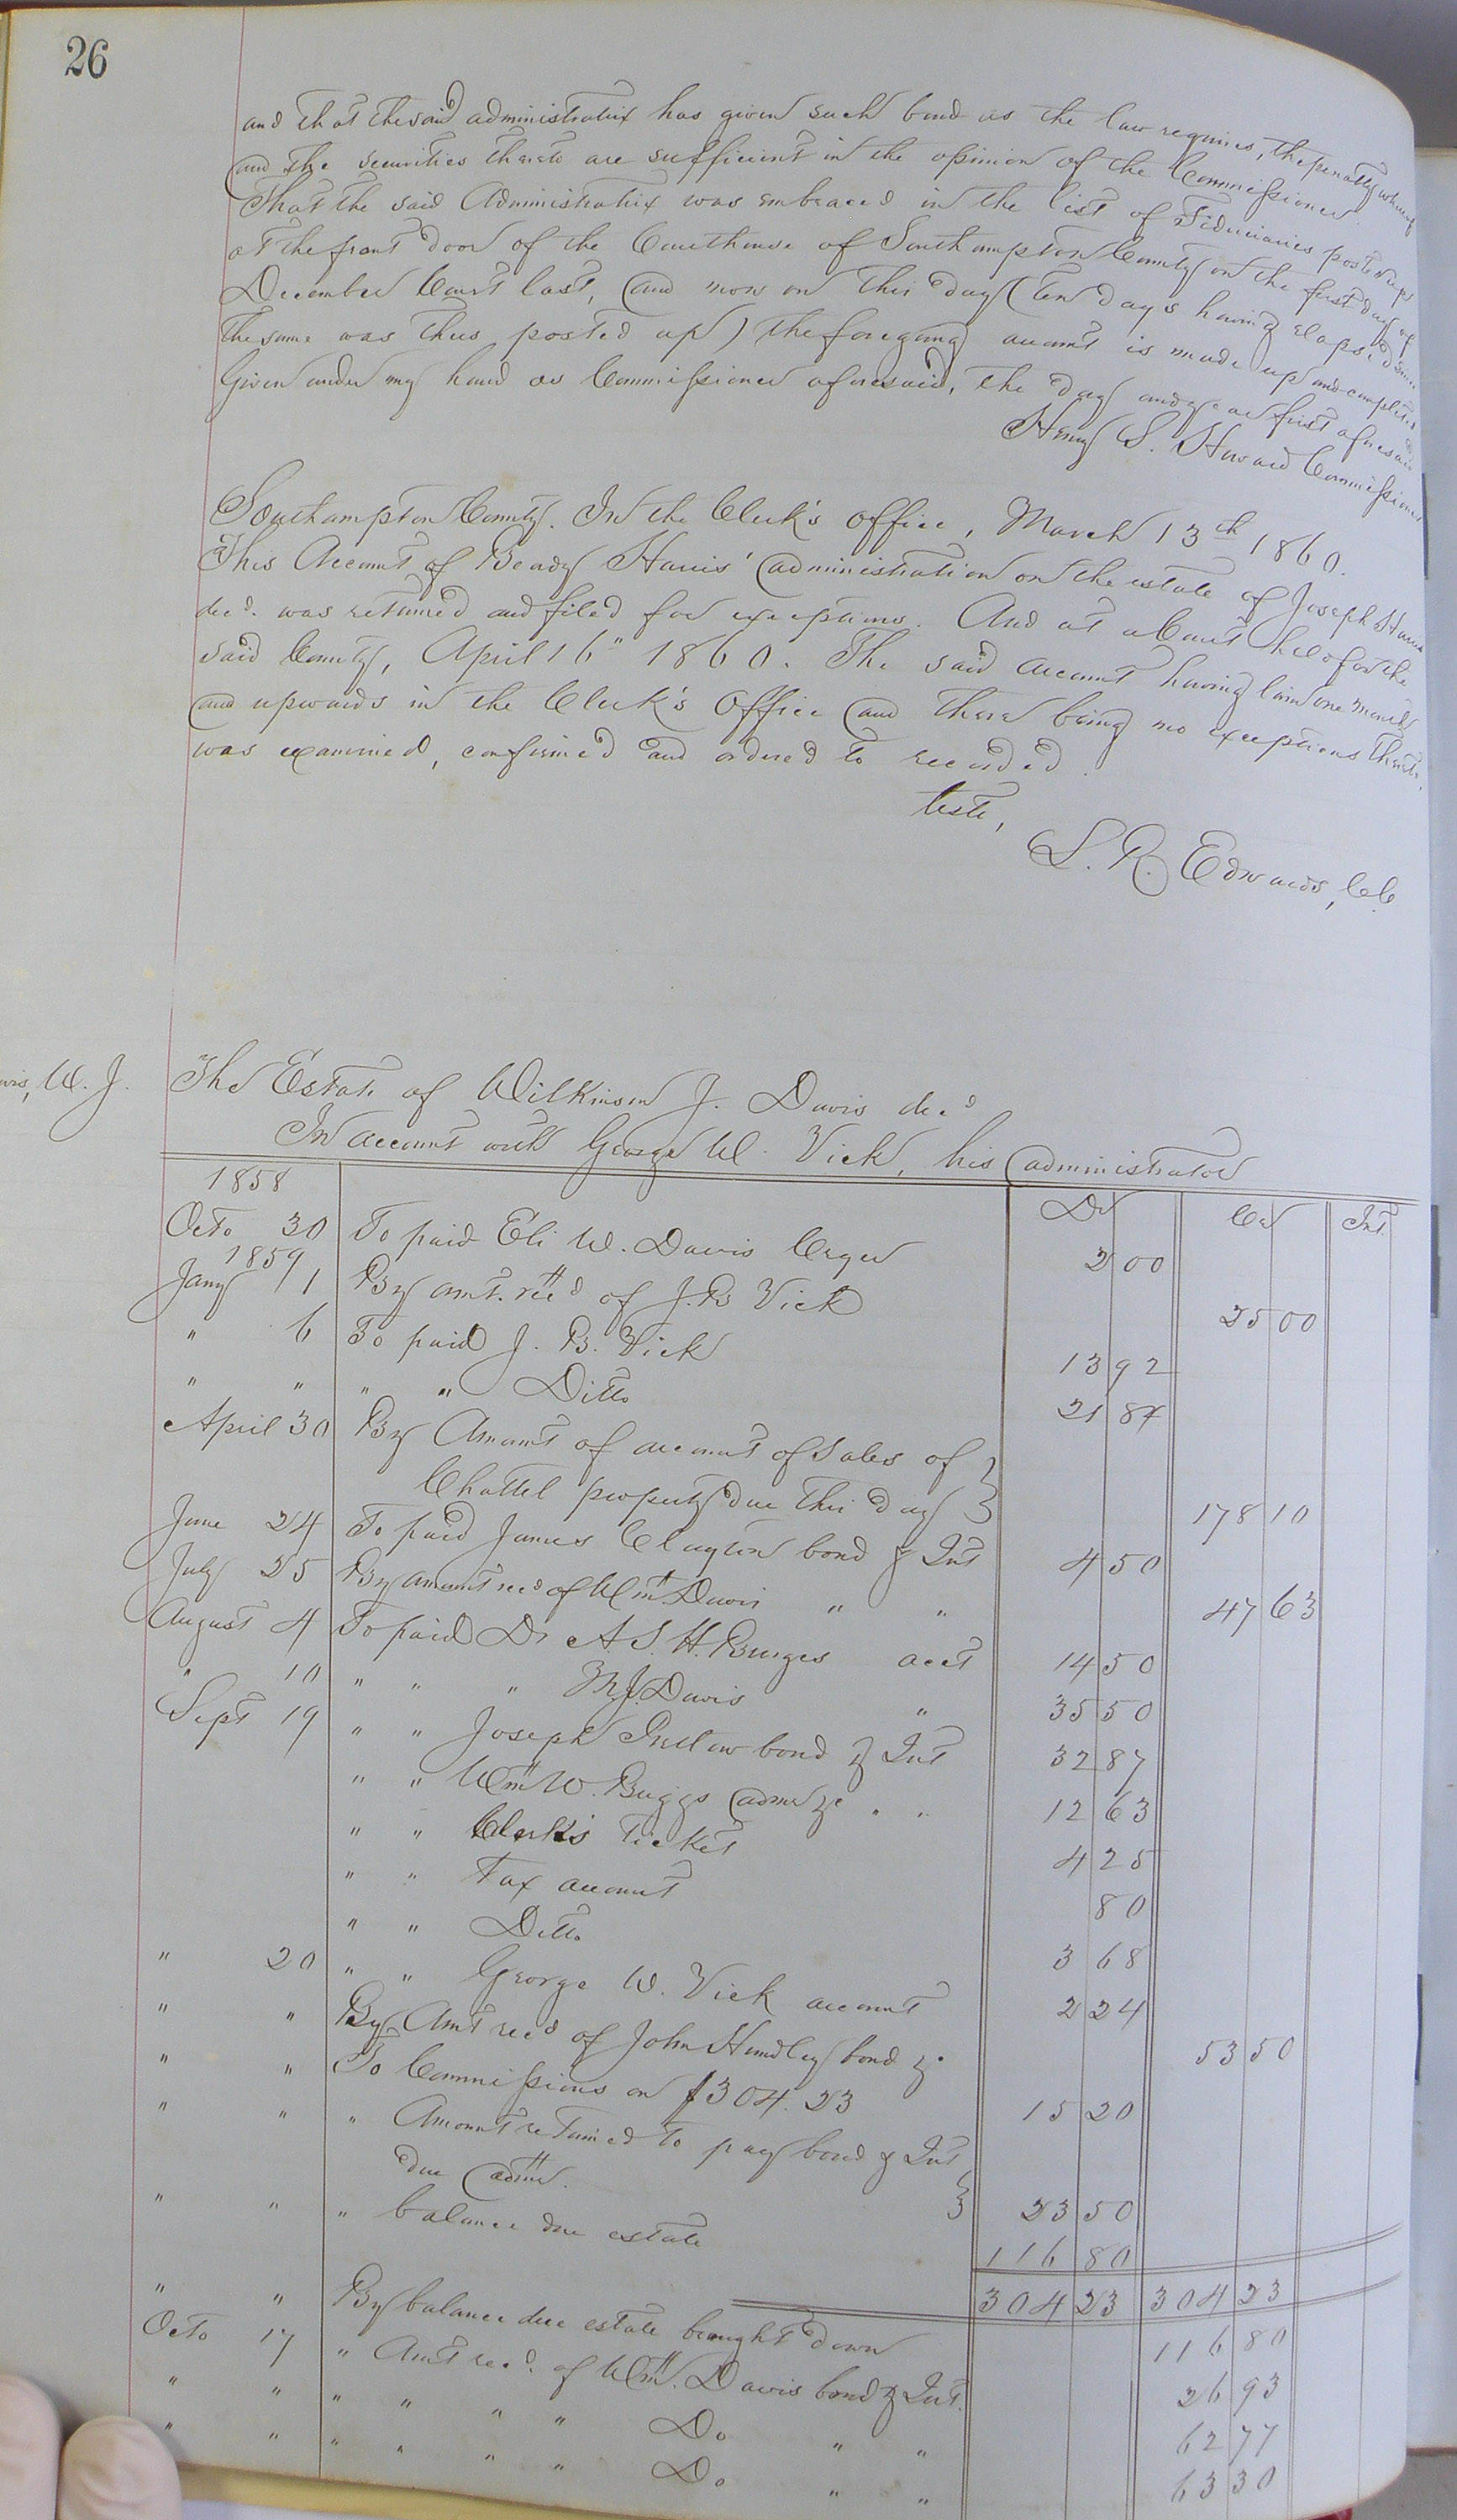 26
and that the said administratrix has given such bond as the law requires, the penalty whereof
and the securities thereto are sufficient in the opinion of the Commissioner.
That the said Administratrix was embraced in the list of Fiduciaries posted up
at the front door of the Courthouse of Southampton County on the first day of
December Court last, and now on this day (ten days having elapsed since
the same was thus posted up) the foregoing account is made up and completed
Given under my hand as Commissioner aforesaid, the day and year first aforesaid
Henry S. Howard Commissioner
Southampton County. In the Clerk's office, March 13th 1860.
This Account of Beady Harris' administration on the estate of Joseph Harris
decd. was returned and filed for exceptions. And at a Court held for the
said County, April 16" 1860. The said account having lain one month
and upwards in the Clerk's Office and there being no exceptions thereto,
was examined, confirmed and ordered to recorded.
teste,
L. R. Edwards, C.C.
W. J. The Estate of Wilkinson J. Davis decd
In account with George W. Vick, his administrator
1858 Dr Cr Int.
Octo 30 To paid Eli W. Davis Cryer 2 00
1859
Jany 1 By amt. recd of J. B Vick 25 00
" 6 To paid J. B. Vick 13 92
" " " " Ditto 21 87
April 30 By Amount of account of Sales of }
Chattel property due this day } 178 10
June 24 To paid James Clayton bond & Int 4 50
July 25 By amount recd of Wm. Davis " " 47 63
August 4 To paid Dr A. S. H. Burges acct 14 50
" 10 " " " M. J. Davis " 35 50
Sept 19 " " Joseph Inslow bond & Int 32 87
" " Wm W. Briggs admr &c " " 12 63
" " Clerk's Ticket 4 25
" " Tax account 80
" " Ditto 3 68
" 20 " " George W. Vick account 2 24
" " By Amt recd of John Hundley bond &c 53 50
" " To Commissions on $304.23 15 20
" " " Amount retained to pay bond & Int }
due admr. } 23 50
" " " balance due estate 116 80
304 23 304 23
" " By balance due estate brought down 116 80
Octo 17 " Amt recd. of Wm. Davis bond & Int. 26 93
" " " " " " Do " " 62 77
" " " " " " Do " " 63 30